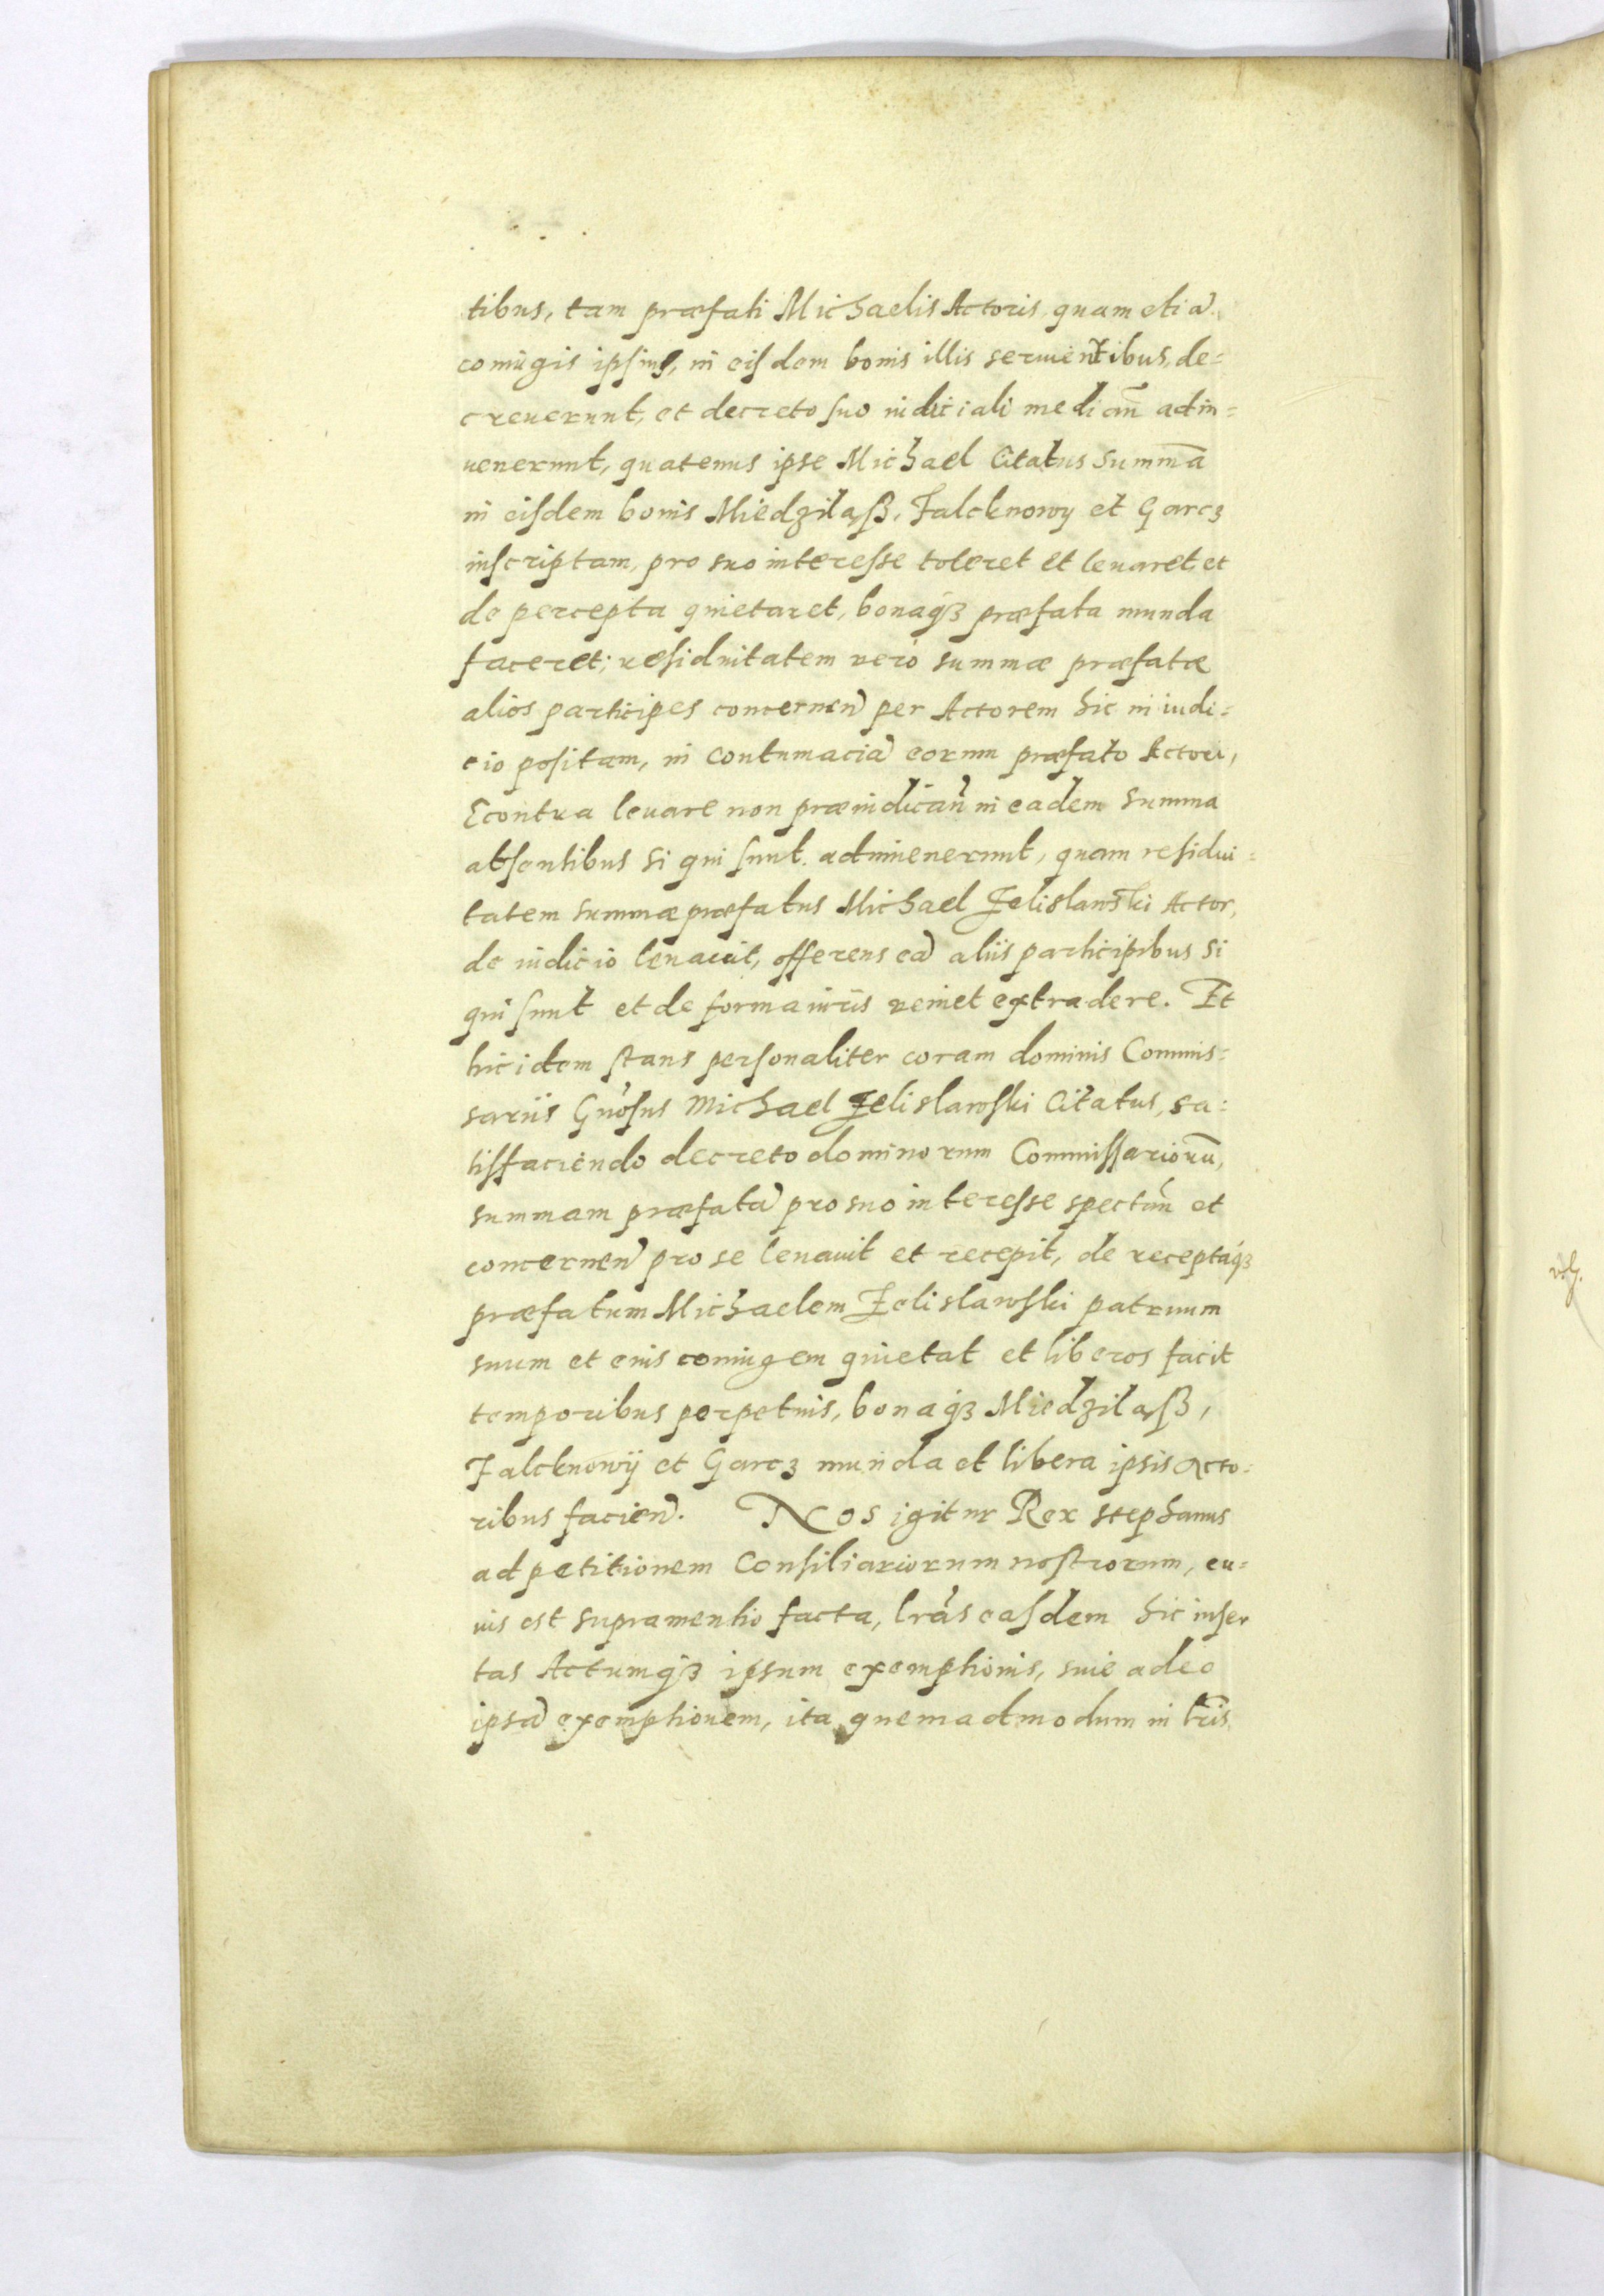 tibus, tam præfati Michaelis Actoris, quam etiā
coniugis ipsius, in eisdem bonis illis seruientibus, de=
creuerunt, et decreto suo iudiciali median̄ adin=
uenerunt, quatenus ipse Michael Citatus Summā
in eisdem bonis Miedziląß, Falcknowy et Garcz
inscriptam, pro suo interesse toleret et leuaret, et
de percepta quietaret, bonaqȝ præfata munda
faceret; residuitatem vero summæ præfatæ
alios participes concernen̄ per Actorem hic in iudi=
cio positam, in contumaciā eorum præfato Actori,
Econtra leuare non præiudican̄ in eadem Summa
absentibus si qui sunt. adinuenerunt, quam residui=
tatem summæ præfatus Michael Zelislawski Actor,
de iudicio leuauit, offerens eā aliis participibus si
qui sunt et de forma iuris veniet extradere. Et
hic idem stans personaliter coram dominis Commis=
sariis Gn̄osus Michael Zelislawski Citatus, sa=
tisfaciendo decreto dominorum Commissariorū,
summam præfatā pro suo interesse spectan̄ et
concernen̄ pro se leuauit et recepit, de receptaqȝ
præfatum Michaelem Zelislawski patruum
suum et eius coniugem quietat et liberos facit
temporibus perpetuis, bonaqȝ Miedziląß,
Falcknowÿ et Garcz munda et libera ipsis Acto=
ribus facien̄. Nos igitur Rex Stephanus
ad petitionem Consiliariorum nostrorum, cu=
ius est supra mentio facta, lrās easdem hic inser
tas Actumqȝ ipsum exemptionis, siue adeo
ipsā exemptionem, ita quemadmodum in lr̄is